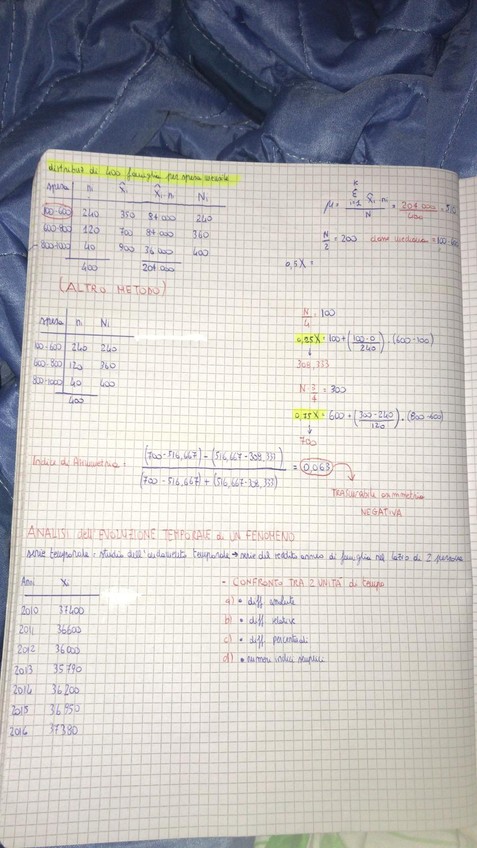 distribuz. di 400 famiglie per spesa mensile
spesa ni x̂i x̂i·ni Ni
100-600 240 350 84 000 240
600-800 120 700 84 000 360
800-1000 40 900 36 000 400
400 204 000
μ = Σ i=1 K x̂i·ni / N = 204 000 / 400 = 510
N/2 = 200 classe mediana = 100-600
0,5X =
(ALTRO METODO)
spesa ni Ni
100-600 240 240
600-800 120 360
800-1000 40 400
400
N/4 = 100
0,25X = 100 + (100-0 / 240) · (600-100)
↓
308,333
N 3/4 = 300
0,75X = 600 + (300-240 / 120) · (800-600)
↓
700
Indice di Asimmetria = (700-516,667) - (516,667-308,333) / (700-516,667) + (516,667-308,333) = 0,063
TRASCURABILE asimmetria
NEGATIVA
ANALISI dell'EVOLUZIONE TEMPORALE di UN FENOMENO
serie temporale = studio dell'andamento temporale → serie del reddito annuo di famiglie nel lazio di 2 persone
Anni Xi
2010 37400
2011 36600
2012 36000
2013 35790
2014 36200
2015 36950
2016 37380
- CONFRONTO TRA 2 UNITÀ di tempo
a) • diff assolute
b) • diff relative
c) • diff percentuali
d) • numeri indici semplici